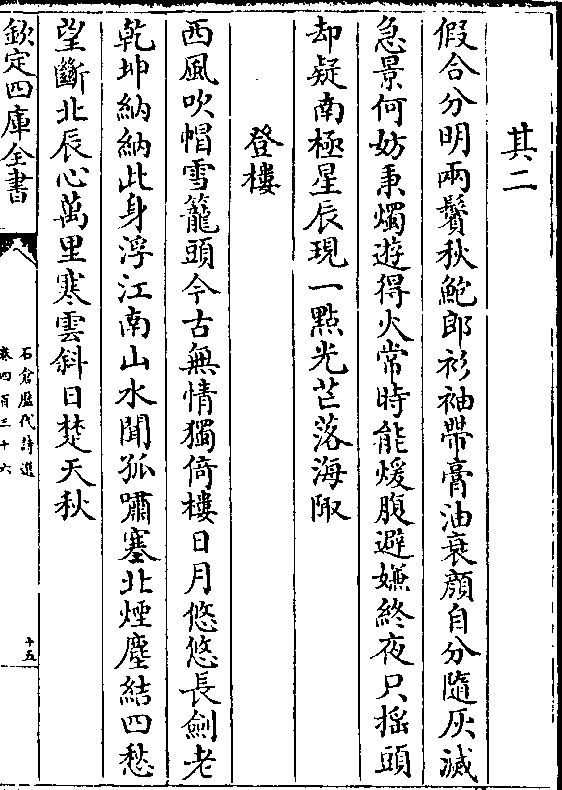 其二
假合分明兩鬢秋鮑郎衫袖帶膏油衰顔自分隨灰滅
急景何妨秉燭遊得火常時能煖腹避嫌終夜只揺頭
却疑南極星辰現一點光芒落海陬
登樓
西風吹帽雪籠頭今古無情獨倚樓日月悠悠長劍老
乾坤納納此身浮江南山水聞孤嘯塞北煙塵結四愁
望斷北辰心萬里寒雲斜日楚天秋
欽定四庫全書
石倉歷代詩選
卷四百三十六
十五